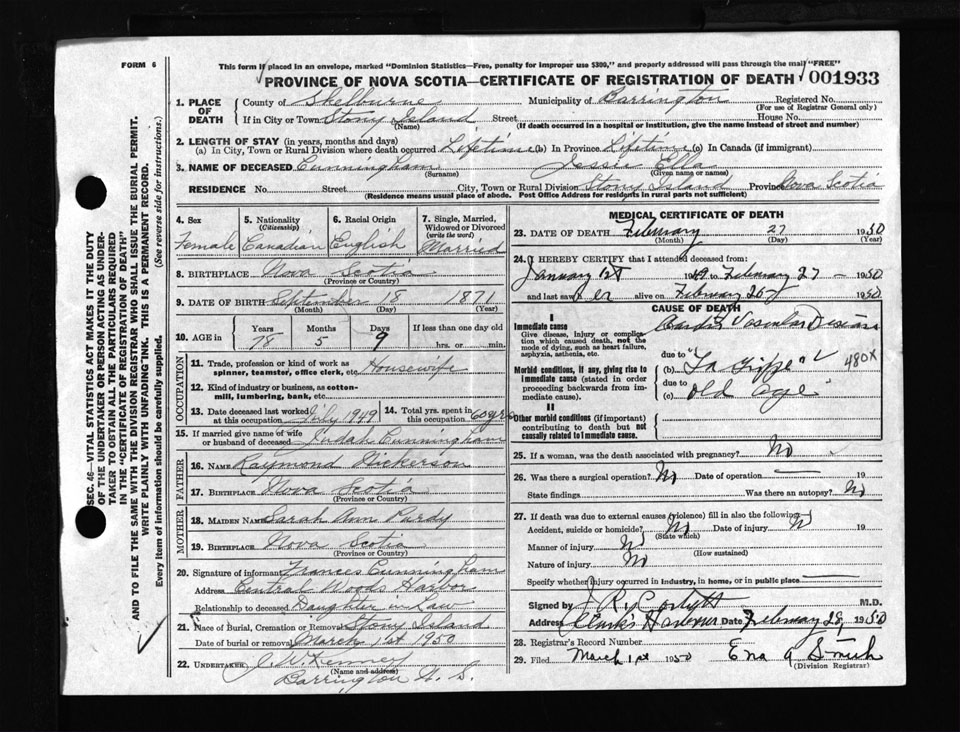 FORM 6
This form if placed in an envelope, marked "Dominion Statistics—Free, penalty for improper use $300," and properly addressed will pass through the mail "FREE"
PROVINCE OF NOVA SCOTIA—CERTIFICATE OF REGISTRATION OF DEATH 001933
SEC. 46—VITAL STATISTICS ACT MAKES IT THE DUTY
OF THE UNDERTAKER OR PERSON ACTING AS UNDER-
TAKER TO OBTAIN ALL THE PARTICULARS REQUIRED
IN THE "CERTIFICATE OF REGISTRATION OF DEATH"
AND TO FILE THE SAME WITH THE DIVISION REGISTRAR WHO SHALL ISSUE THE BURIAL PERMIT.
WRITE PLAINLY WITH UNFADING INK. THIS IS A PERMANENT RECORD.
Every item of information should be carefully supplied. (See reverse side for instructions.)
1. PLACE OF DEATH
County of Shelburne Municipality of Barrington Registered No.
(For use of Registrar General only)
If in City or Town Stony Island Street House No.
(Name) (If death occurred in a hospital or institution, give the name instead of street and number)
2. LENGTH OF STAY (in years, months and days)
(a) In City, Town or Rural Division where death occurred Lifetime (b) In Province Lifetime (c) In Canada (if immigrant)
3. NAME OF DECEASED Cunningham Jessie Ella
(Surname) (Given name or names)
RESIDENCE No. Street City, Town or Rural Division Stony Island Province Nova Scotia
(Residence means usual place of abode. Post Office Address for residents in rural parts not sufficient)
4. Sex Female
5. Nationality (Citizenship) Canadian
6. Racial Origin English
7. Single, Married, Widowed or Divorced (write the word) Married
8. BIRTHPLACE Nova Scotia
(Province or Country)
9. DATE OF BIRTH September 18 1871
(Month) (Day) (Year)
10. AGE in Years Months Days If less than one day old
78 5 9 hrs. or min.
OCCUPATION
11. Trade, profession or kind of work as spinner, teamster, office clerk, etc. Housewife
12. Kind of industry or business, as cotton-mill, lumbering, bank, etc.
13. Date deceased last worked at this occupation July 1949
14. Total yrs. spent in this occupation 60 yrs
15. If married give name of wife or husband of deceased Judah Cunningham
FATHER
16. NAME Raymond Nickerson
17. BIRTHPLACE Nova Scotia
(Province or Country)
MOTHER
18. MAIDEN NAME Sarah Ann Purdy
19. BIRTHPLACE Nova Scotia
(Province or Country)
20. Signature of informant Frances Cunningham
Address Central Woods Harbor
Relationship to deceased Daughter in Law
21. Place of Burial, Cremation or Removal Stony Island
Date of burial or removal March 1st 1950
22. UNDERTAKER J W Kenney
(Name and address)
Barrington N. S.
MEDICAL CERTIFICATE OF DEATH
23. DATE OF DEATH February 27 1950
(Month) (Day) (Year)
24. I HEREBY CERTIFY that I attended deceased from:
January 1st 1949 to February 27 - 1950
and last saw her alive on February 26 1950
CAUSE OF DEATH
I
Immediate cause
Give disease, injury or complication which caused death, not the mode of dying, such as heart failure, asphyxia, asthenia, etc.
Cardio Vascular Disease
Morbid conditions, if any, giving rise to immediate cause (stated in order proceeding backwards from immediate cause).
due to
(b) "La Grippe" 480X
due to
(c) old age
II
Other morbid conditions (if important) contributing to death but not causally related to immediate cause.
25. If a woman, was the death associated with pregnancy? No
26. Was there a surgical operation? No Date of operation 19
State findings Was there an autopsy? No
27. If death was due to external causes (violence) fill in also the following:
Accident, suicide or homicide? No Date of injury N 19
(State which)
Manner of injury No (How sustained)
Nature of injury No
Specify whether injury occurred in industry, in home, or in public place
Signed by M.D.
Address Clarks Harbour Date February 28, 1950
28. Registrar's Record Number
29. Filed March 1st 1950 Ena A Smith
(Division Registrar)